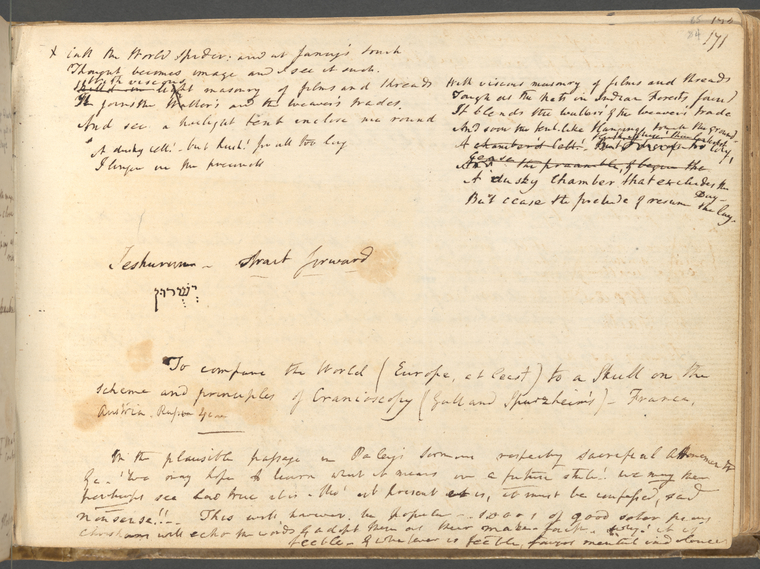 65 170
84 171
x call the World Spider: and at Fancy's touch
Thought becomes image and I see it such.
With viscous masonry of films and threads
It joins the Waller's and the weaver's trades,
And see a twilight tent enclose me round
A dusky cell! - but hush! for all too long
I linger in the
With viscous masonry of films and threads
Tough as the nets in Indian Forests found
It blends the Waller's & the weaver's trade
And soon the tent-like Hangings touch the ground
A dusky Chamber that excludes the Day -
But cease the prelude & resume the lay -
Jeshurun - Strait forward
יְשֻׁרוּן
To compare the World (Europe, at least) to a Skull on the
scheme and principles of Cranioscopy (Gall and Spurzheim's) - France,
Austria, Russia
On the plausible passage in Paley's Sermons respecting sacrificial Atonement &
&c - "We may hope to learn what it means in a future state! we may then
perhaps see how true it is - tho' at present it is, it must be confessed, sad
nonsense!!- This will, however, be popular - 1000s of good sober
Christians will echo the words & adopt them as their make-faith - why? it is
feeble - & whatever is feeble, favors mental indolence